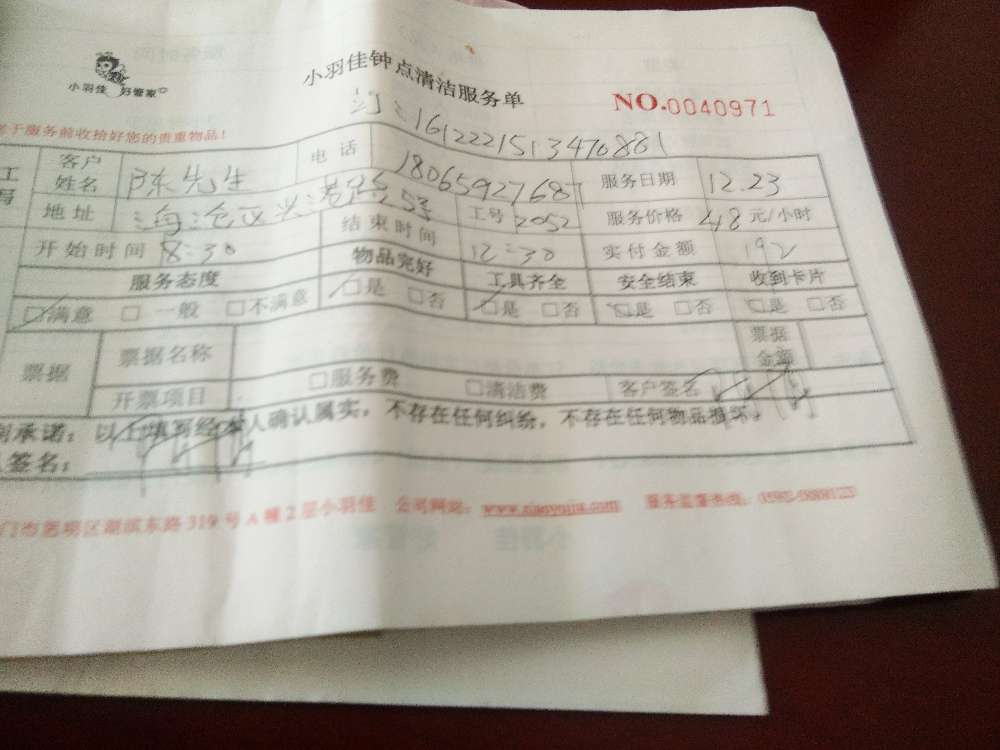 小羽佳 好管家
小羽佳钟点清洁服务单
NO.0040971
于服务前收拾好您的贵重物品!
1612221513470881
工 客户姓名 陈先生 电话 18065927687 服务日期 12.23
写 地址 海沧区兴港路 工号 2052 服务价格 48 元/小时
开始时间 8:30 结束时间 12:30 实付金额 192
服务态度 物品完好 工具齐全 安全结束 收到卡片
☑满意 □一般 □不满意 ☑是 □否 ☑是 □否 ☑是 □否 ☑是 □否
票据 票据名称 票据金额
开票项目 □服务费 □清洁费 客户签名
承诺:以上填写经本人确认属实,不存在任何纠纷,不存在任何物品损坏。
签名:
门市思明区湖滨东路319号A幢2层小羽佳 公司网站:www.xiaoyujia.com 服务监督热线: